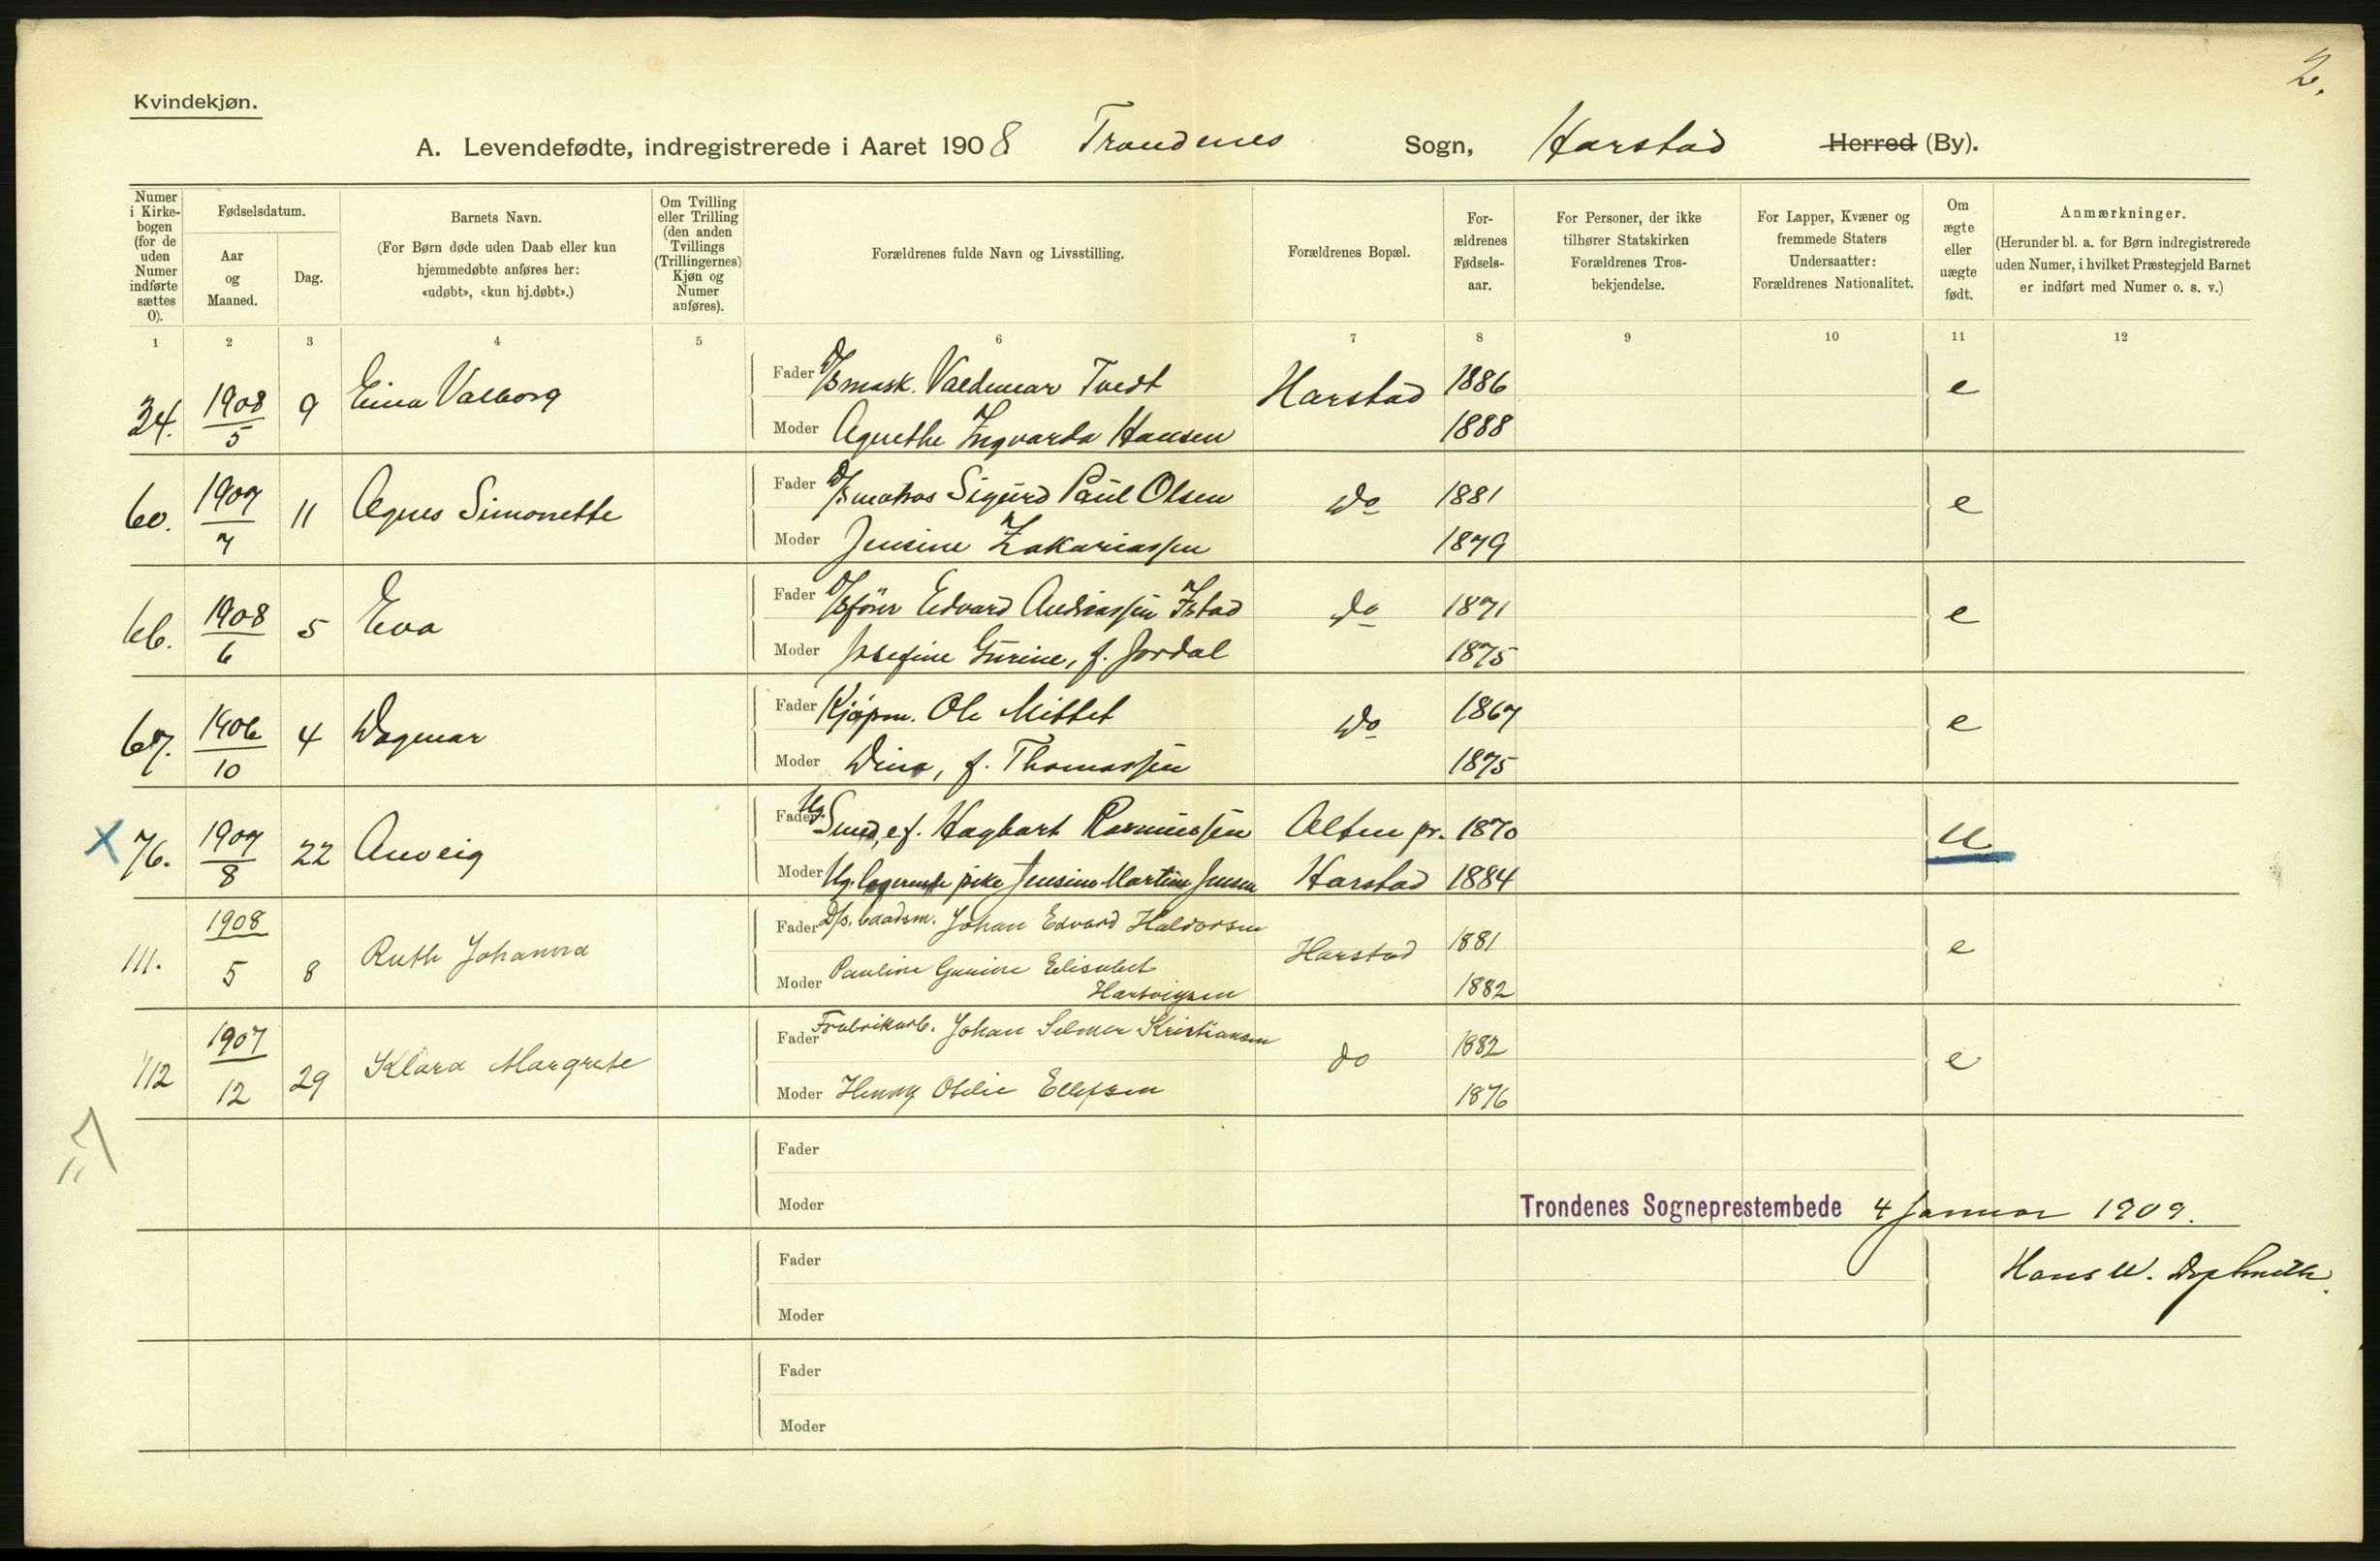 2.
Kvindekjøn.
A. Levendefødte, indregistrerede i Aaret 1908 Trondenes Sogn, Harstad Herred (By).
Numer i Kirke-bogen (for de uden Numer indførte sættes 0).
Fødselsdatum.
Aar og Maaned.
Dag.
Barnets Navn.
(For Børn døde uden Daab eller kun hjemmedøbte anføres her: «udøbt», «kun hj.døbt».)
Om Tvilling eller Trilling (den anden Tvillings (Trillingernes) Kjøn og Numer anføres).
Forældrenes fulde Navn og Livsstilling.
Forældrenes Bopæl.
For-ældrenes Fødsels-aar.
For Personer, der ikke tilhører Statskirken Forældrenes Tros-bekjendelse.
For Lapper, Kvæner og fremmede Staters Undersaatter: Forældrenes Nationalitet.
Om ægte eller uægte født.
Anmærkninger.
(Herunder bl. a. for Børn indregistrerede uden Numer, i hvilket Præstegjeld Barnet er indført med Numer o. s. v.)
1 2 3 4 5 6 7 8 9 10 11 12
34. 1908/5 9 Eina Valborg Fader D/s mask. Valdemar Tvedt Harstad 1886 e
Moder Agnethe Ingvarda Hansen 1888
60. 1907/7 11 Agnes Simonette Fader D/s matros Sigurd Paul Olsen Do 1881 e
Moder Jensine Zakariassen 1879
66. 1908/6 5 Eva Fader D/s fører Edvard Andreassen Istad Do 1871 e
Moder Josefine Gurine, f. Jordal 1875
67. 1906/10 4 Dagmar Fader Kjøpm. Ole Mittet Do 1867 e
Moder Dina, f. Thomassen 1875
X 76. 1907/8 22 Anveig Fader Ug. Smed, ef. Hagbart Rasmussen Alten pr. 1870 u
Moder Ug. logerende pike Jensine Martine Jensen Harstad 1884
111. 1908/5 8 Ruth Johanna Fader D/s. baadsm. Johan Edvard Haldorsen Harstad 1881 e
Moder Pauline Gurine Elisabet Hartvigsen 1882
112 1907/12 29 Klara Margrete Fader Fabrikarb. Johan Selmer Kristiansen do 1882 e
Moder Henny Otilie Ellefsen 1876
7
Fader
Moder
Trondenes Sogneprestembede 4 Januar 1909.
Fader
Hans W.
Moder
Fader
Moder